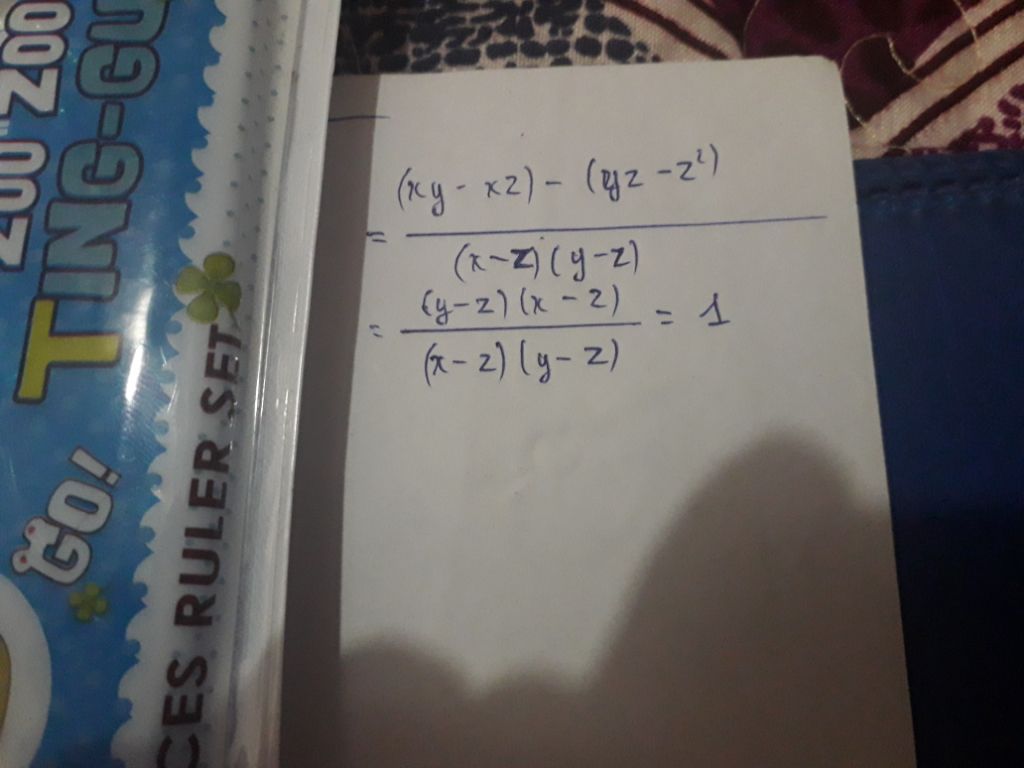 200 Z00
TING-GU
GO!
CES RULER SET
= \frac{(xy - xz) - (yz - z²)}{(x-z)(y-z)}
= \frac{(y-z)(x-z)}{(x-z)(y-z)} = 1